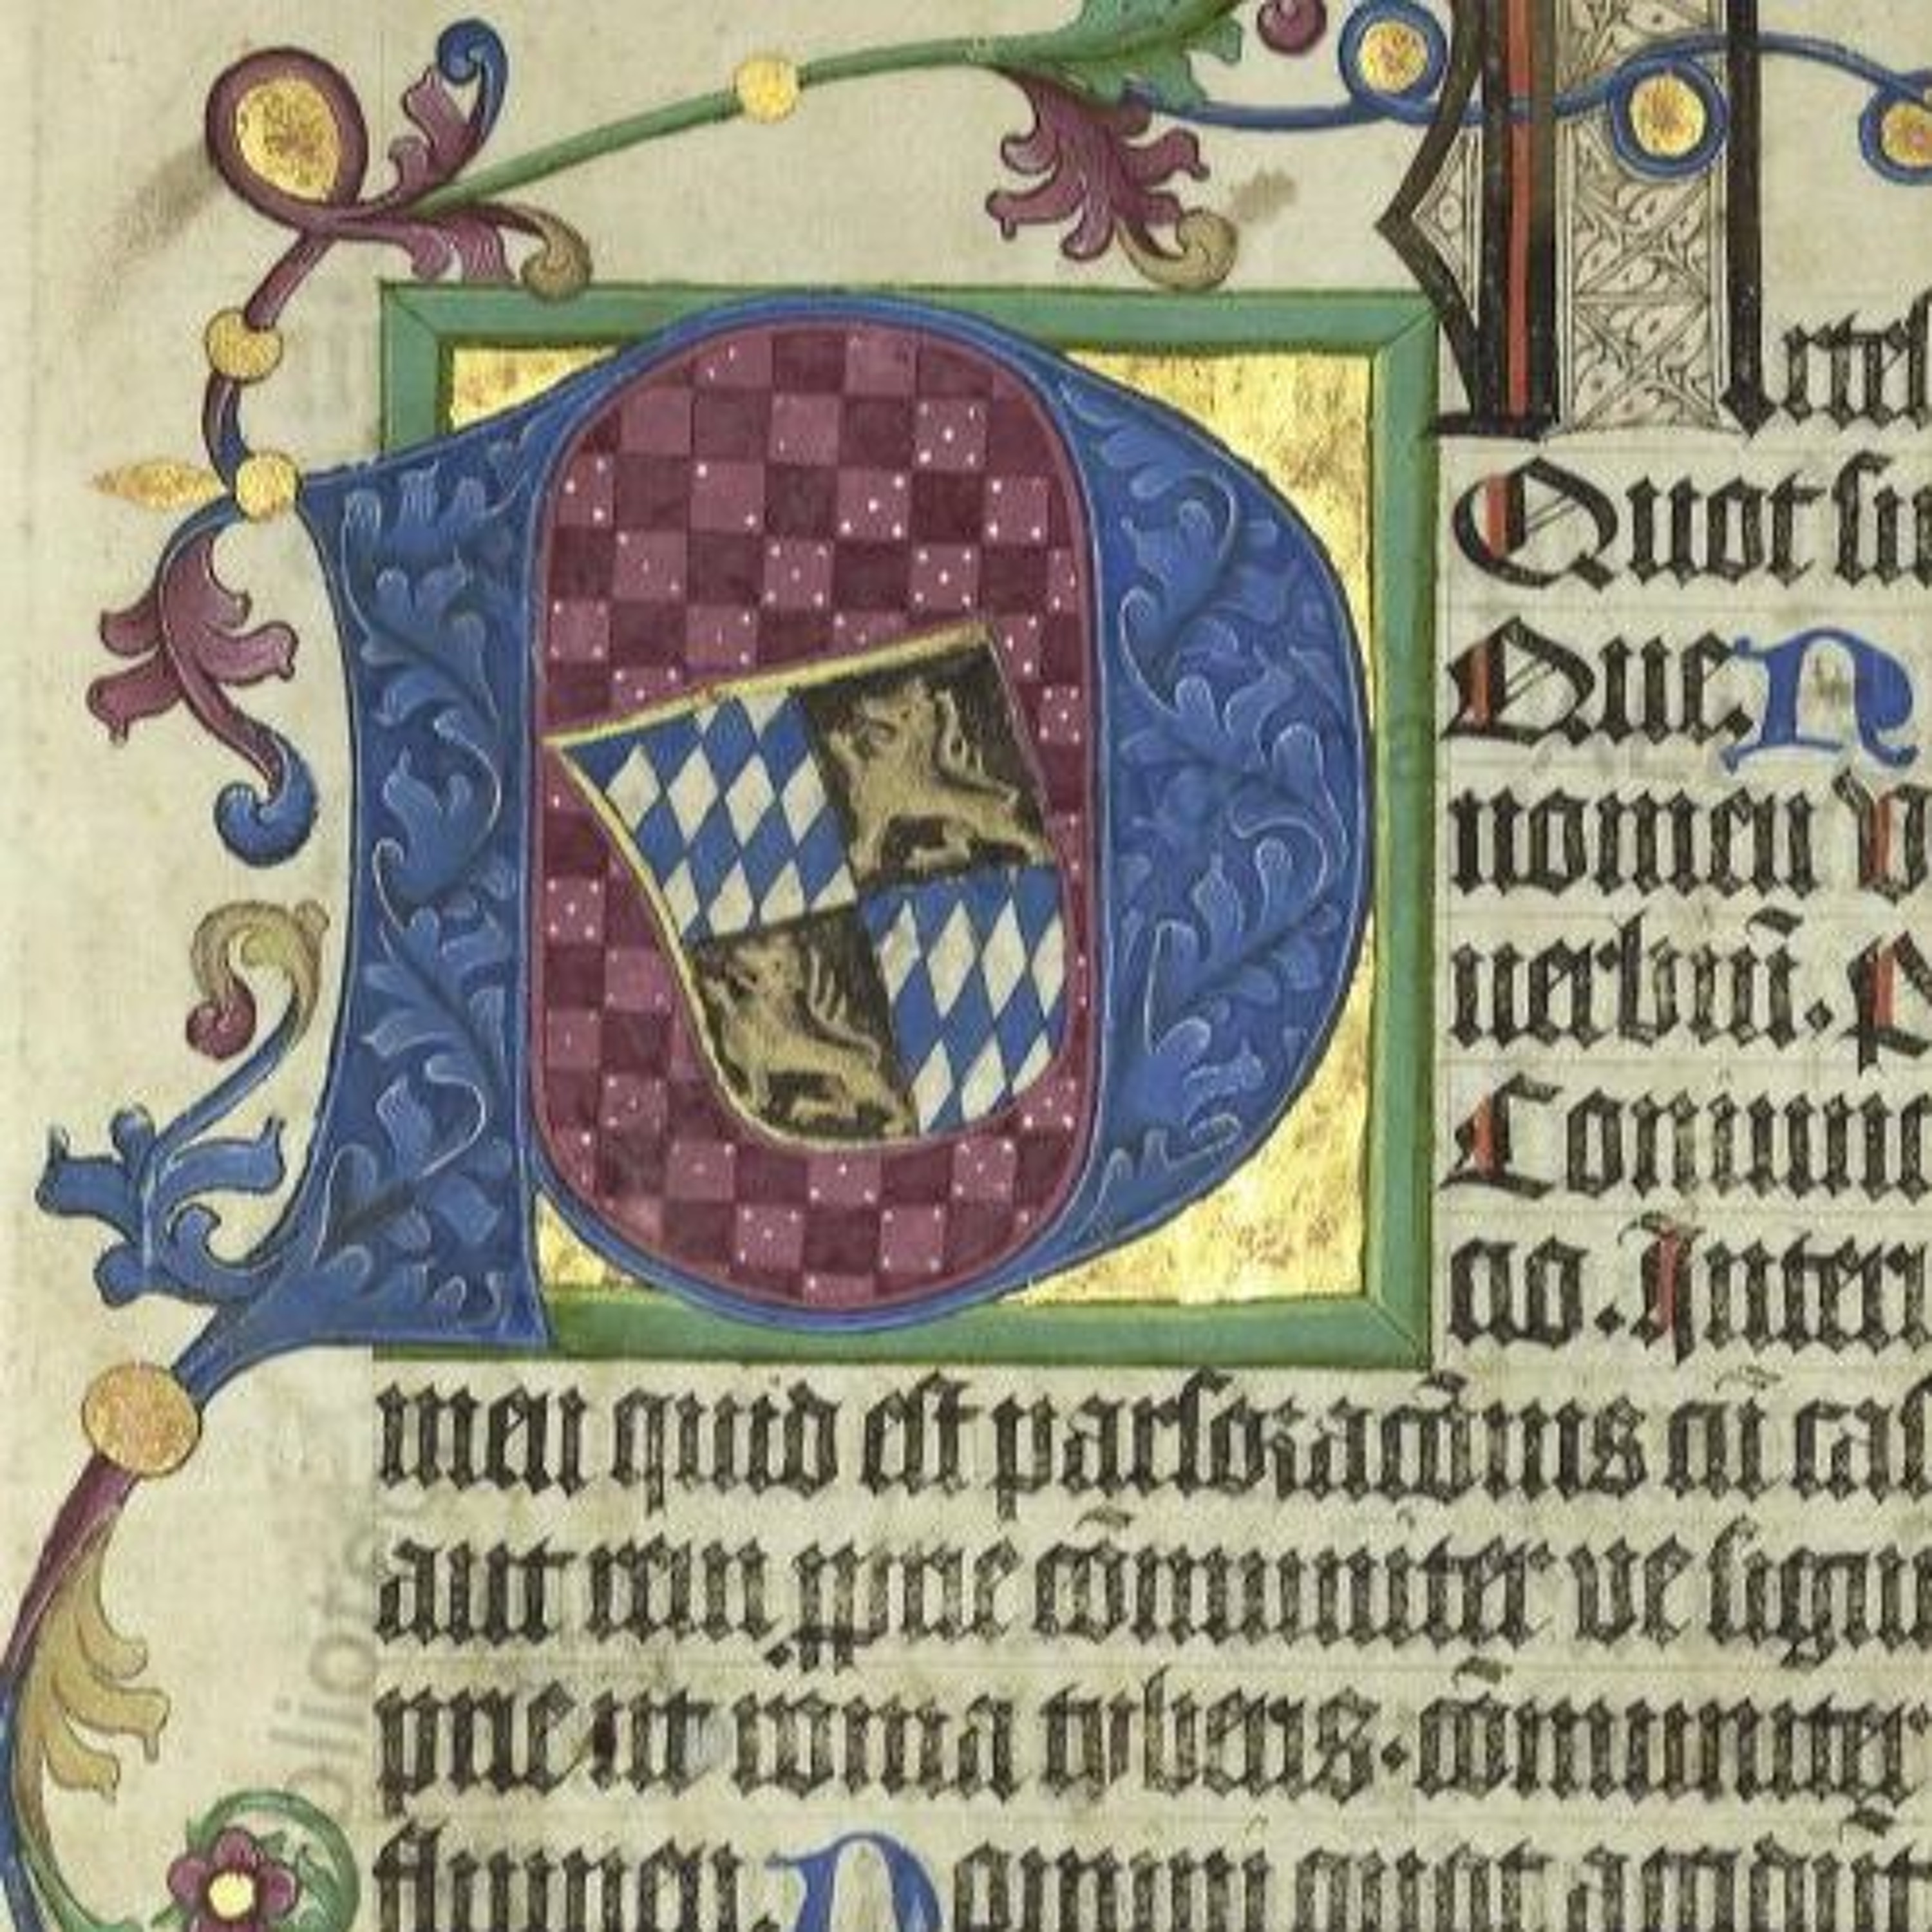 P
rtes
Quot sū
Que. N
nomen v
uerbiuī. P
Coniunc
cio. Inter
men quid est pars orac̄onis cū cas
aut rem ꝓprie cōmuniter ve signi
prie ut roma tyberis. cōmuniter
flumen. Nomini quot accidūt